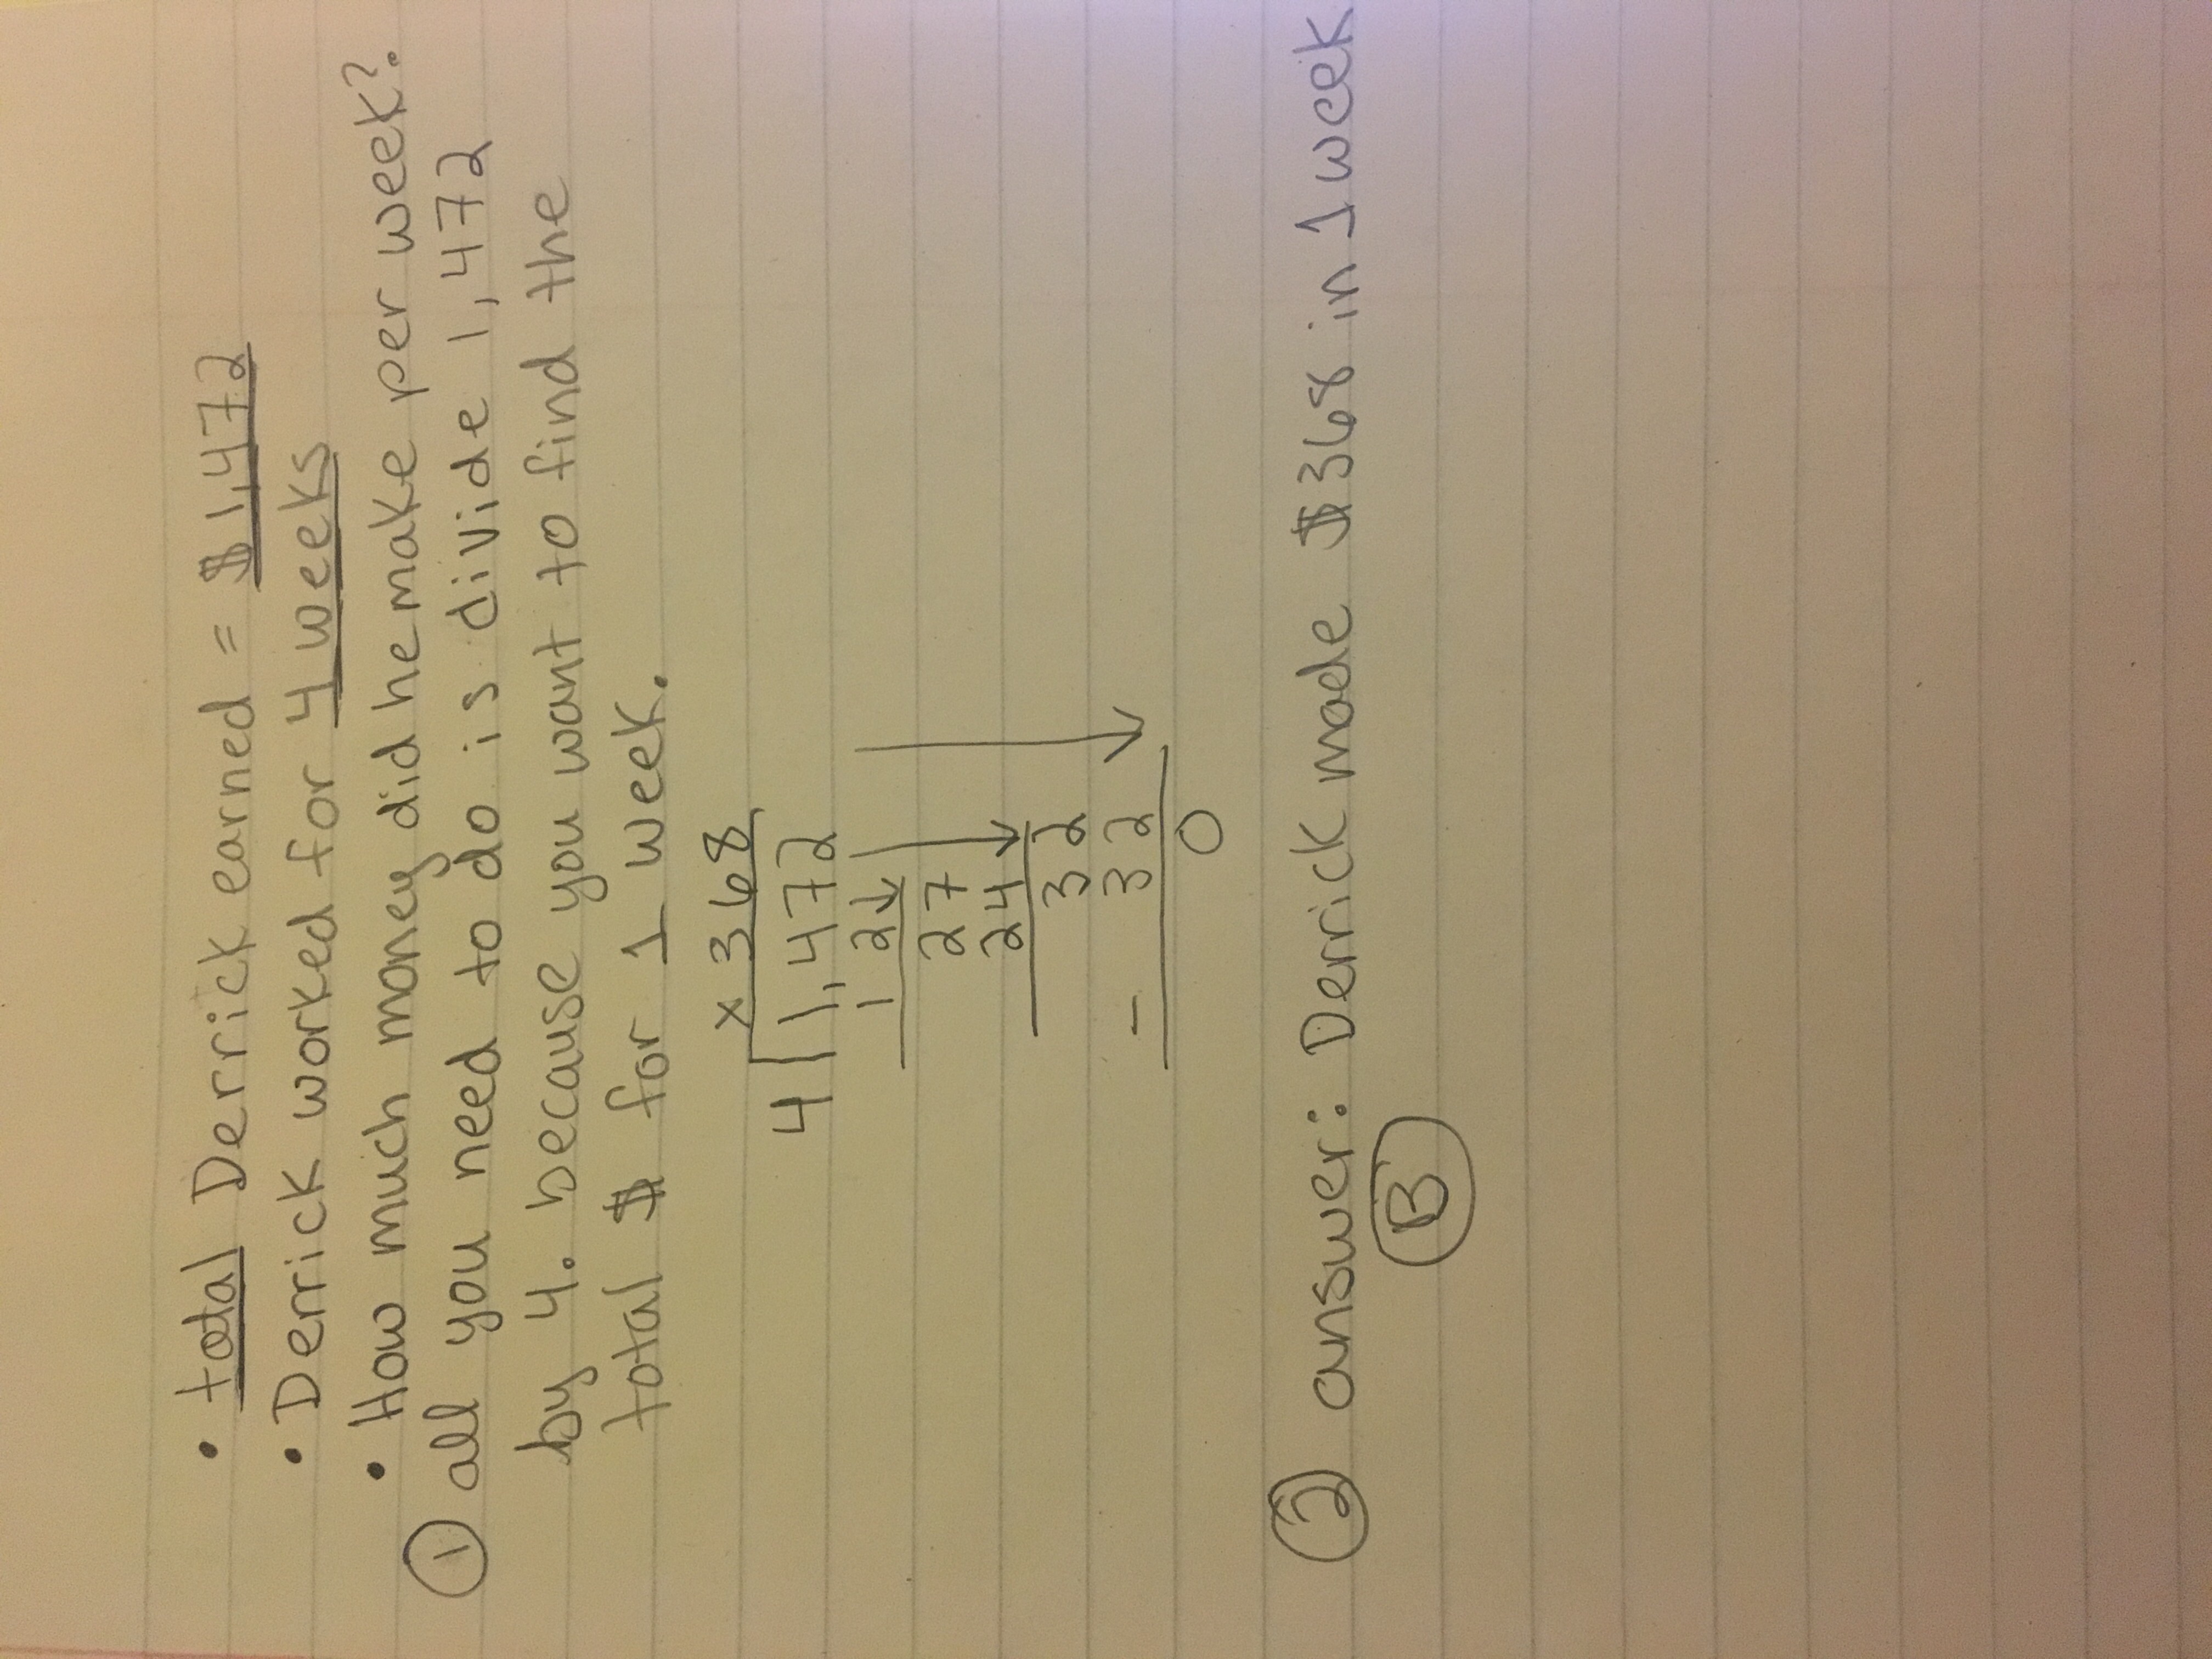 • total Derrick earned = $1,472
• Derrick worked for 4 weeks
• How much money did he make per week?.
① all you need to do is divide 1,472
by 4. because you want to find the
total $ for 1 week.
x 368
4 1,472
12
27
24
32
- 32
0
② answer: Derrick made $368 in 1 week
B